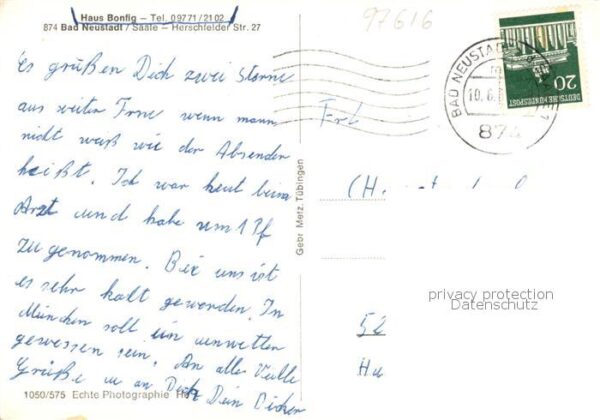 Haus Bonfig – Tel. 09771/2102
874 Bad Neustadt / Saale – Herschfelder Str. 27
97616
es grüßen Dich zwei Sterne
aus weiter Ferne wenn mann
nicht weiß wie der Absender
heißt. Ich war heut beim
Arzt und habe um 1 Pf
zu genommen. Bei uns ist
es sehr kalt geworden. In
München soll ein unwetter
gewessen sein. An alle Viele
Grüße u an Dich Dein
1050/575 Echte Photographie
Gebr. Metz, Tübingen
BAD NEUSTADT
10.6.
874
DEUTSCHE BUNDESPOST
20
(H
52
privacy protection
Datenschutz